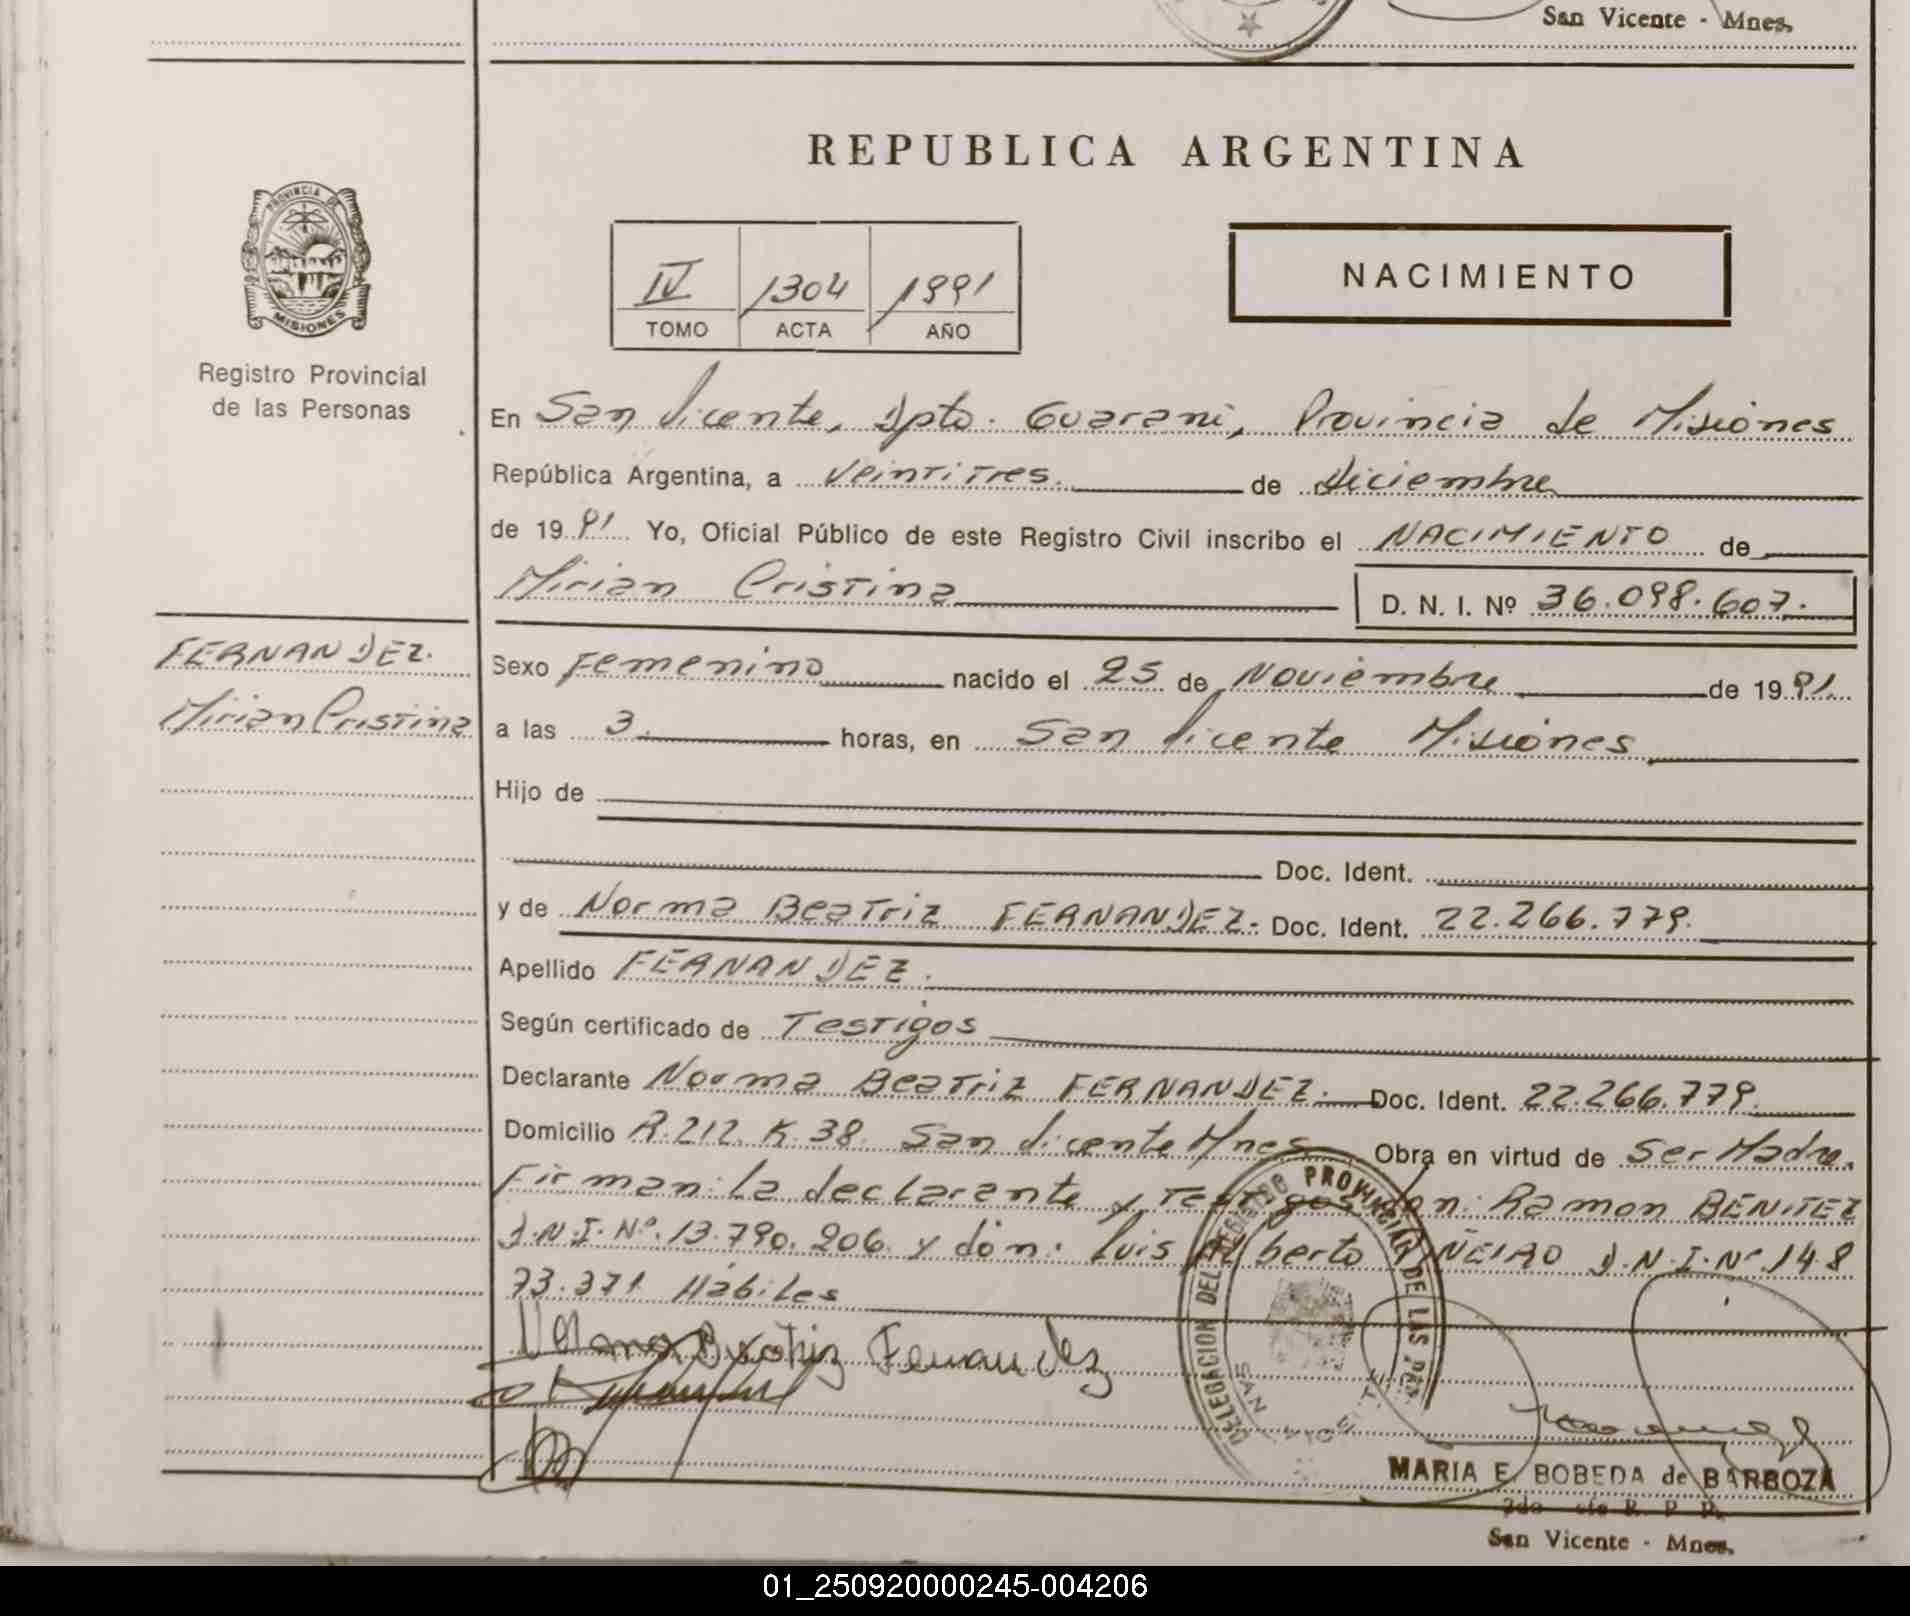 San Vicente - Mnes.
REPUBLICA ARGENTINA
PROVINCIA DE
MISIONES
Registro Provincial
de las Personas
IV 1304 1991
TOMO ACTA AÑO
NACIMIENTO
En San Vicente, Dpto. Guarani, Provincia de Misiones
República Argentina, a Veintitres. de diciembre
de 19 91 Yo, Oficial Público de este Registro Civil inscribo el NACIMIENTO de
Mirian Cristina D. N. I. Nº 36.098.607.
FERNANDEZ.
Mirian Cristina
Sexo Femenino nacido el 25 de Noviembre de 19 91.
a las 3. horas, en San Vicente Misiones
Hijo de
Doc. Ident.
y de Norma Beatriz FERNANDEZ. Doc. Ident. 22.266.779.
Apellido FERNANDEZ.
Según certificado de Testigos
Declarante Norma Beatriz FERNANDEZ. Doc. Ident. 22.266.779.
Domicilio R.212. K.38. San Vicente Mnes Obra en virtud de Ser Madre.
Firman: La declarante y Testigos don: Ramon BENITEZ
D.N.I.Nº.13.790.206. y don: Luis Alberto D.N.I.Nº.148
73.371 Hábiles
Norma Beatriz Fernandez
DELEGACION DEL REGISTRO PROVINCIAL DE LAS PER.
SAN VICENTE
MARIA E. BOBEDA de BARBOZA
San Vicente - Mnes.
01_250920000245-004206